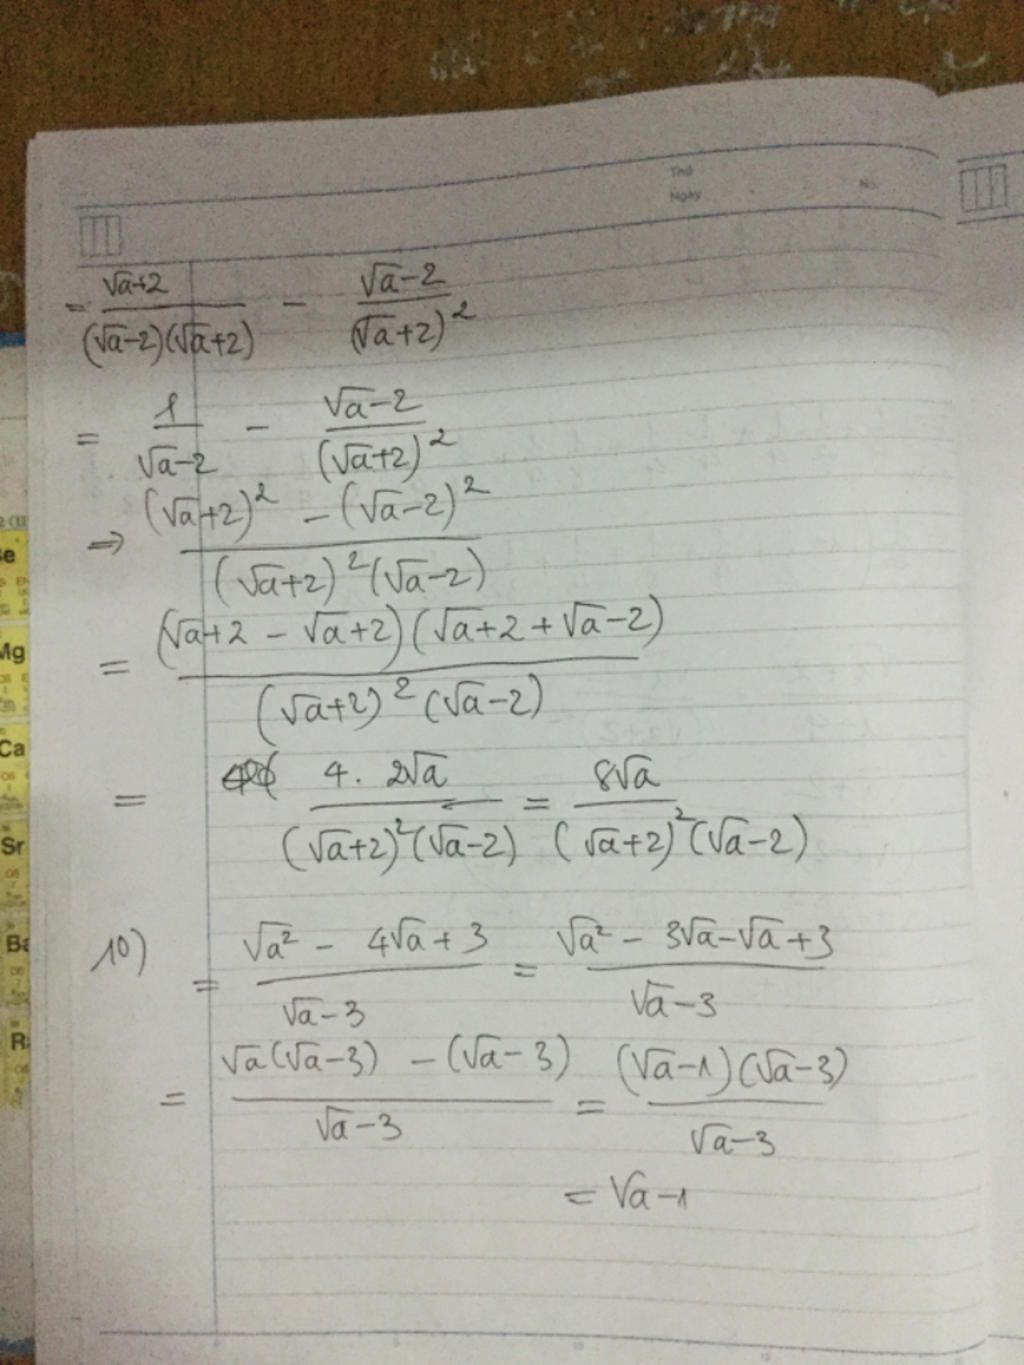 Thứ
Ngày No.
= \frac{√a+2}{(√a-2)(√a+2)} - \frac{√a-2}{(√a+2)^2}
= \frac{1}{√a-2} - \frac{√a-2}{(√a+2)^2}
⇒ \frac{(√a+2)^2 - (√a-2)^2}{(√a+2)^2(√a-2)}
= \frac{(√a+2 - √a+2)(√a+2+√a-2)}{(√a+2)^2(√a-2)}
= \frac{4. 2√a}{(√a+2)^2(√a-2)} = \frac{8√a}{(√a+2)^2(√a-2)}
10) = \frac{√a^2 - 4√a+3}{√a-3} = \frac{√a^2 - 3√a-√a+3}{√a-3}
= \frac{√a(√a-3) - (√a-3)}{√a-3} = \frac{(√a-1)(√a-3)}{√a-3}
= √a-1
Mg
Ca
Sr